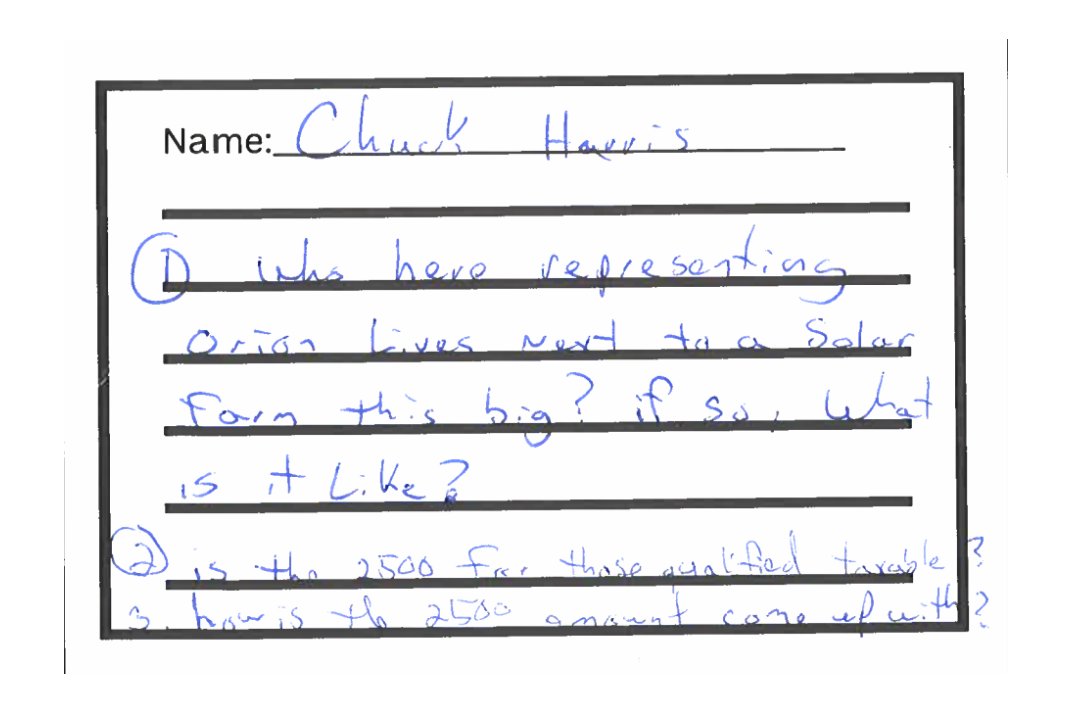 Name: Chuck Harris
① who here representing
Orion Lives Next to a Solar
Farm this big? if so, What
is it Like?
② is the 2500 for those qualified taxable?
3. how is the 2500 amount come up with?